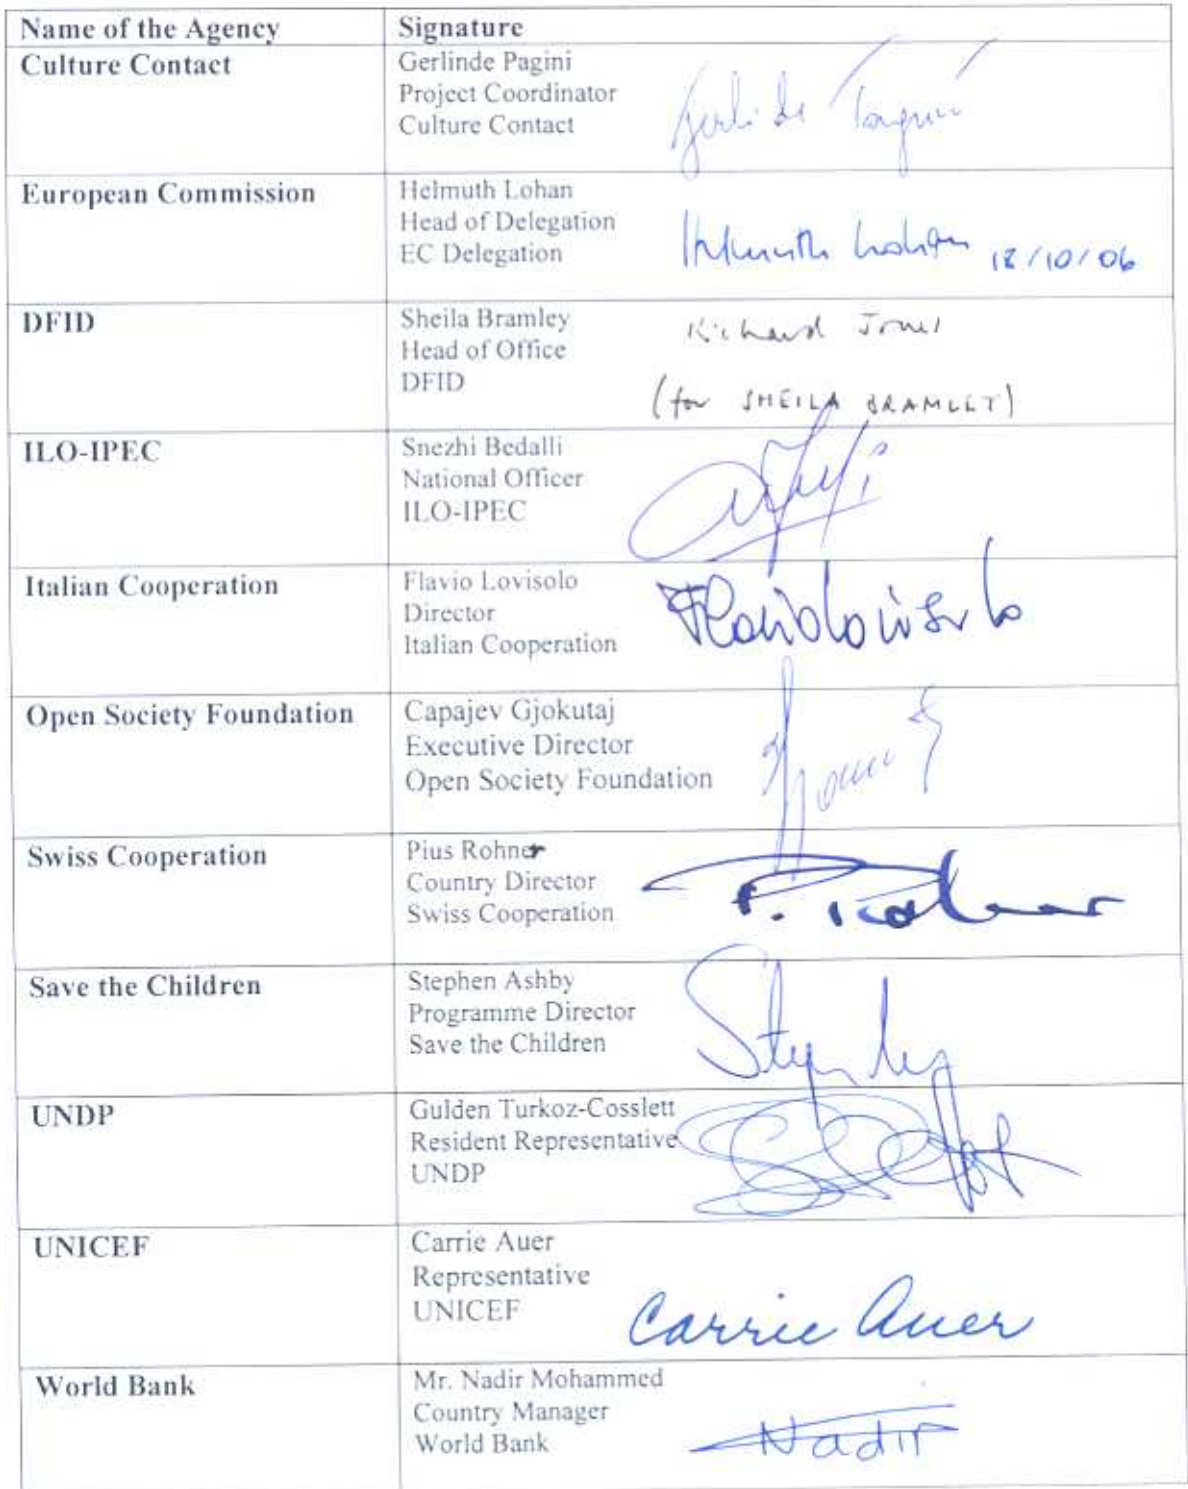 Name of the Agency
Signature
Culture Contact
Gerlinde Pagini
Project Coordinator
Culture Contact
European Commission
Helmuth Lohan
Head of Delegation
EC Delegation
Helmuth Lohan 18/10/06
DFID
Sheila Bramley
Head of Office
DFID
Richard Jones
(for SHEILA BRAMLEY)
ILO-IPEC
Snezhi Bedalli
National Officer
ILO-IPEC
Italian Cooperation
Flavio Lovisolo
Director
Italian Cooperation
Open Society Foundation
Capajev Gjokutaj
Executive Director
Open Society Foundation
Swiss Cooperation
Pius Rohner
Country Director
Swiss Cooperation
P. Rohner
Save the Children
Stephen Ashby
Programme Director
Save the Children
UNDP
Gulden Turkoz-Cosslett
Resident Representative
UNDP
UNICEF
Carrie Auer
Representative
UNICEF
Carrie Auer
World Bank
Mr. Nadir Mohammed
Country Manager
World Bank
Nadir